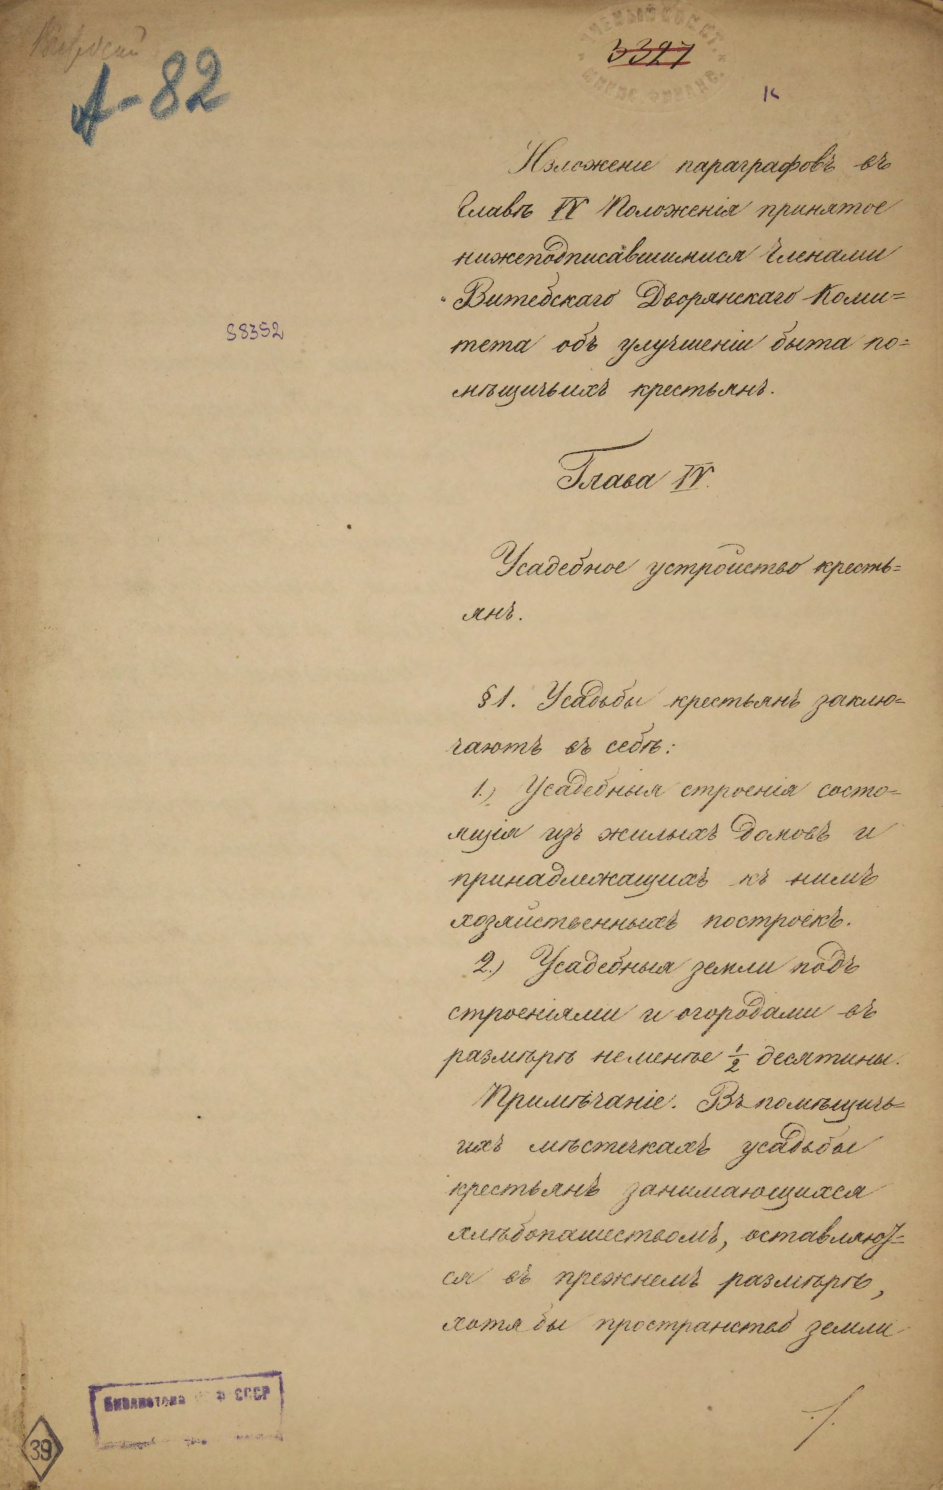 А-82
5327
К
Изложеніе параграфовъ въ
Главѣ IV Положенія принятое
нижеподписавшимися Членами
Витебскаго Дворянскаго Коми=
тета объ улучшеніи быта по=
мѣщичьихъ крестьянъ.
58352
Глава IV.
Усадебное устройство кресть=
янъ.
§ 1. Усадьбы крестьянъ заклю=
чаютъ въ себѣ:
1.) Усадебныя строенія состо=
ящія изъ жилыхъ домовъ и
принадлежащихъ къ нимъ
хозяйственныхъ построекъ.
2.) Усадебныя земли подъ
строеніями и огородами въ
размѣрѣ неменѣе 1/2 десятины.
Примѣчаніе. Въ помѣщичь=
ихъ мѣстечкахъ усадьбы
крестьянъ занимающихся
хлѣбопашествомъ, оставляют=
ся въ прежнемъ размѣрѣ,
хотя бы пространство земли
Библиотека СССР
39